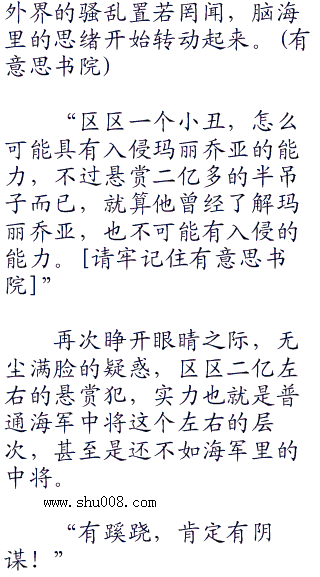 外界的骚乱置若罔闻，脑海
里的思绪开始转动起来。(有
意思书院)
“区区一个小丑，怎么
可能具有入侵玛丽乔亚的能
力，不过悬赏二亿多的半吊
子而已，就算他曾经了解玛
丽乔亚，也不可能有入侵的
能力。[请牢记住有意思书
院]”
再次睁开眼睛之际，无
尘满脸的疑惑，区区二亿左
右的悬赏犯，实力也就是普
通海军中将这个左右的层
次，甚至是还不如海军里的
中将。
www.shu008.com
“有蹊跷，肯定有阴
谋！”